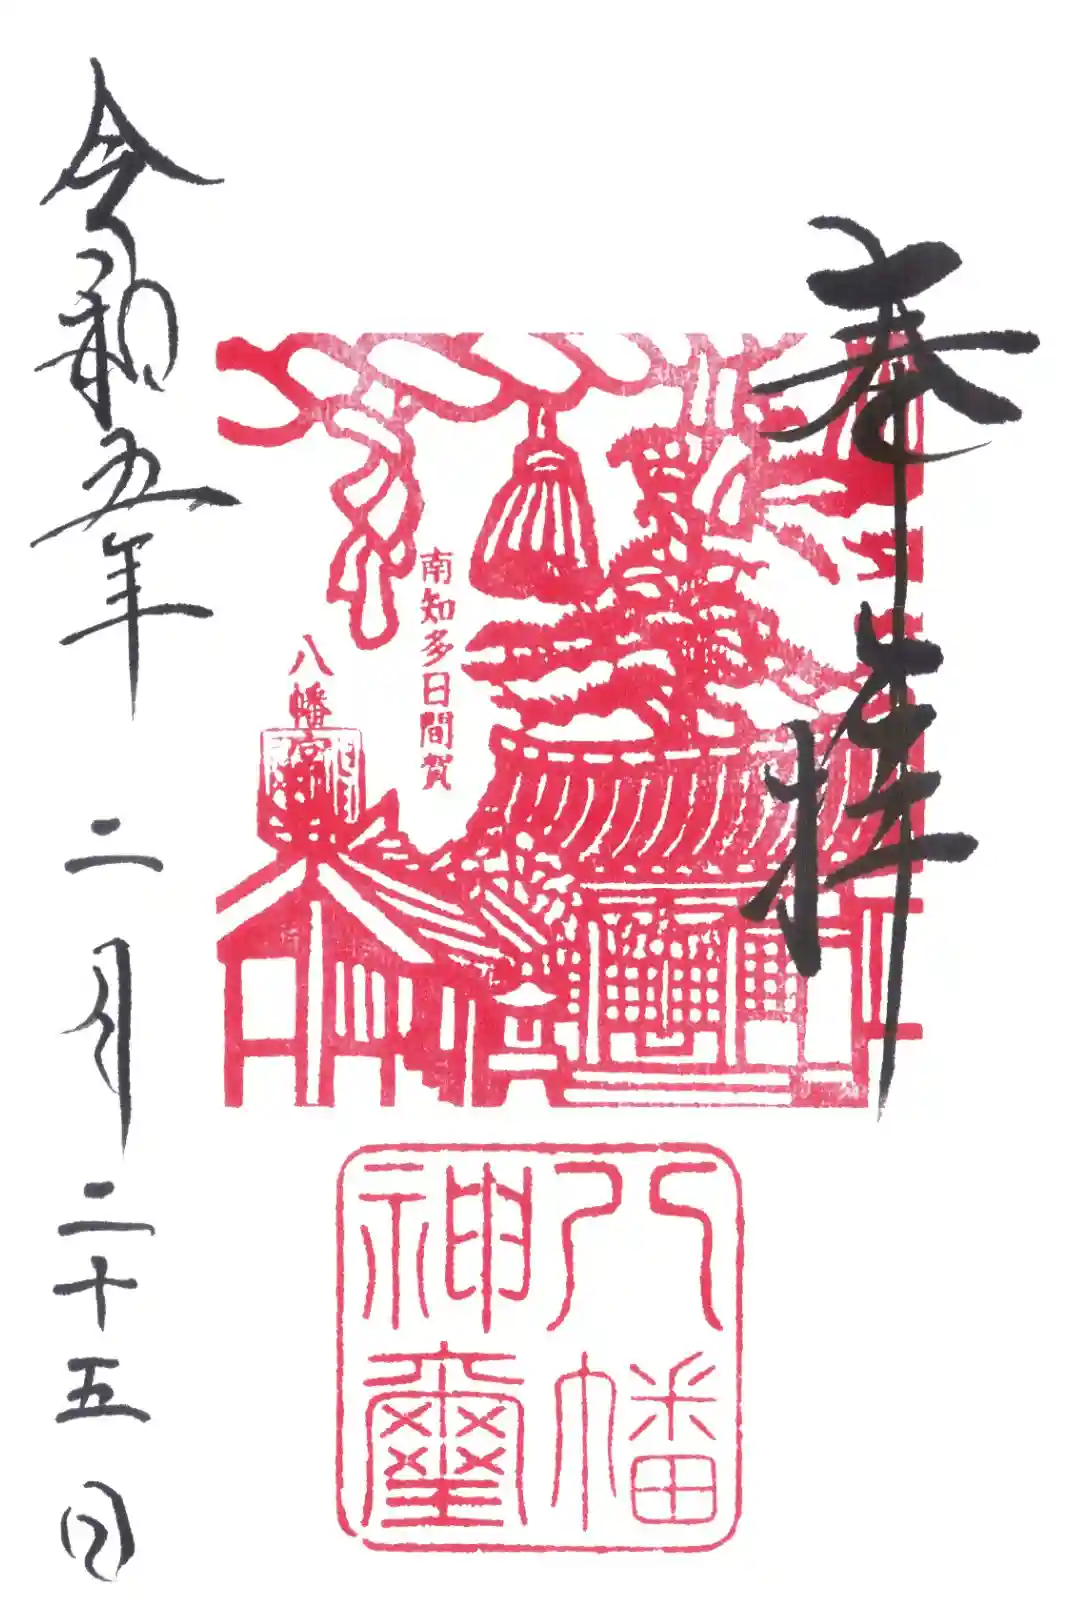 奉拝
南知多日間賀
八幡宮
八幡
神璽
令和五年二月二十五日